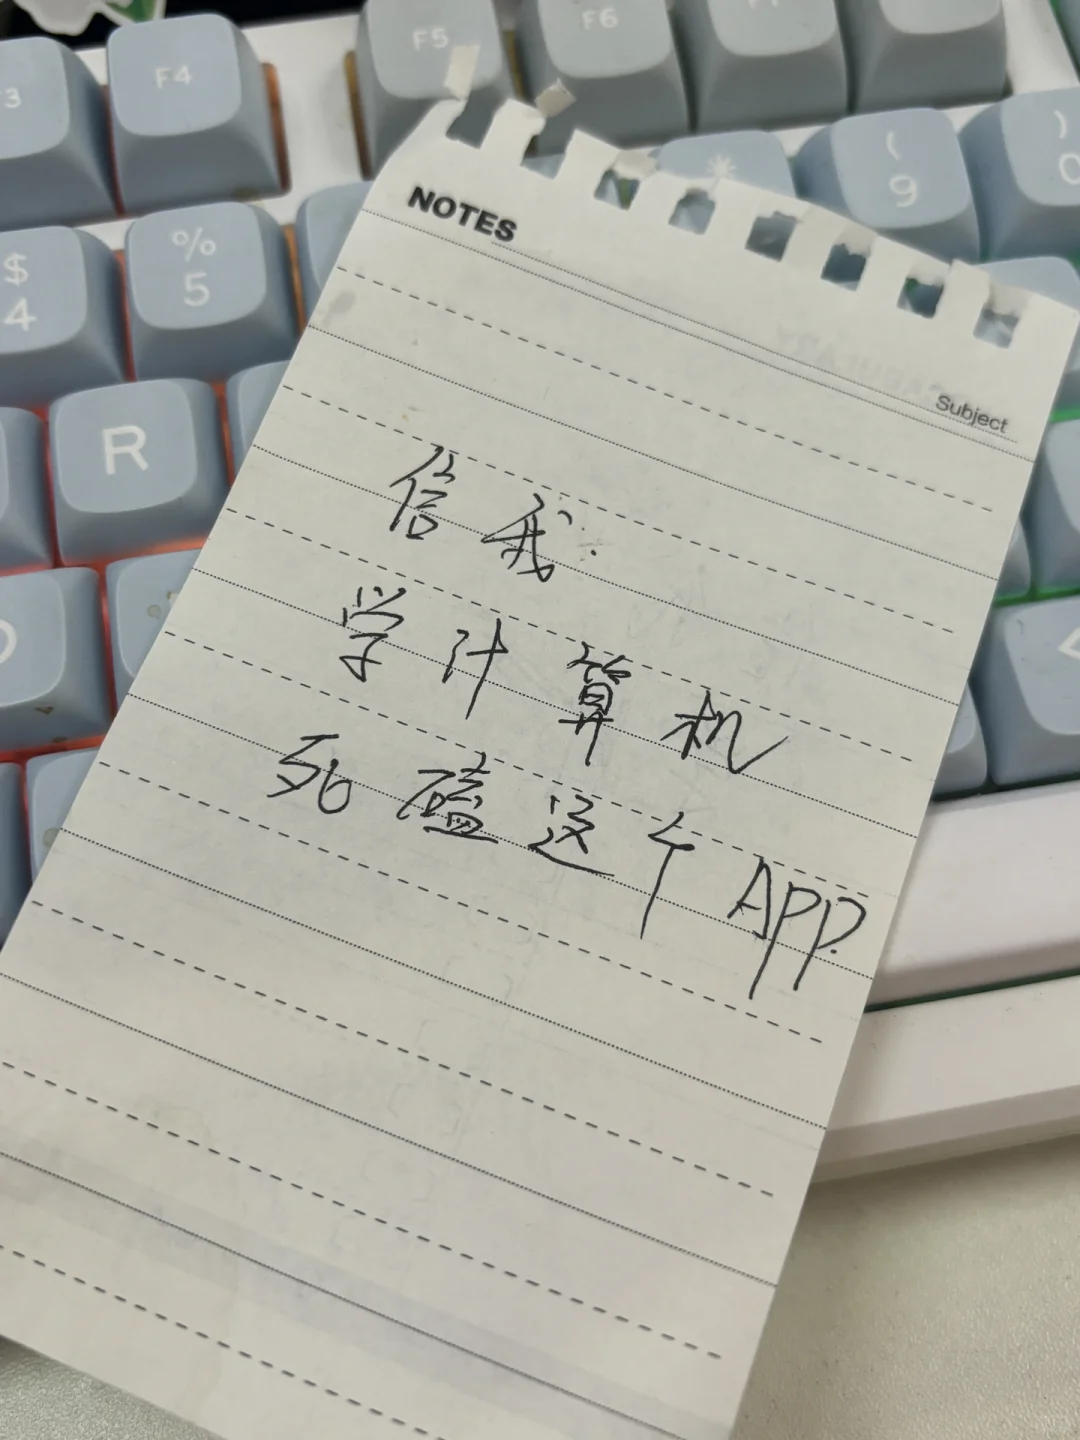 F4
F5
F6
(
9
)
0
$
4
%
5
R
NOTES
Subject
信我:
学计算机
死磕这个APP.